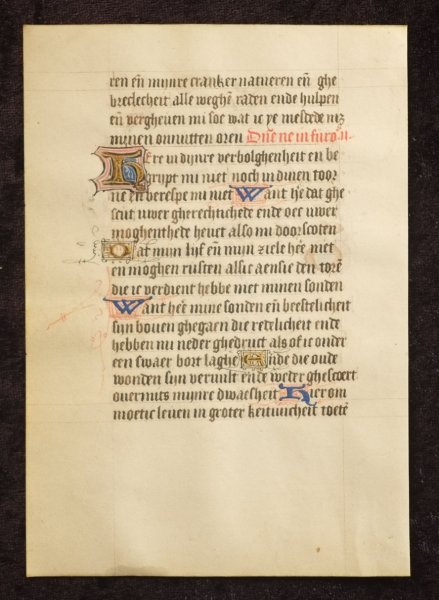 ren en̄ mijnre cranker natueren en̄ ghe
breclecheit alle weghē raden ende hulpen
en̄ vergheuen mi soe wat ic ye mesdede mz
minen onnutten oren Dn̄e ne in furo
ERe in dijnre verbolghenheit en be
grijpt mi niet noch in dinen toor
ne en berespe mi niet Want tfe dat ghe
scut uwer gherechtichede ende oec uwer
moghenthede heuet also mi doorscoten
Dat mijn lijf en̄ mijn ziele hēe niet
en moghen rusten alsic aensie den torē
die ic verdient hebbe met minen sonden
Want hēe mine sonden en̄ beestelicheit
sijn bouen ghegaen die redelicheit ende
hebben mi neder ghedruct als of ic onder
een swaer bort laghe Ende die oude
wonden sijn veruult ende weder ghescoert
ouermits mijnre dwaesheit Hierom
moetic leuen in groter keituicheit toetē